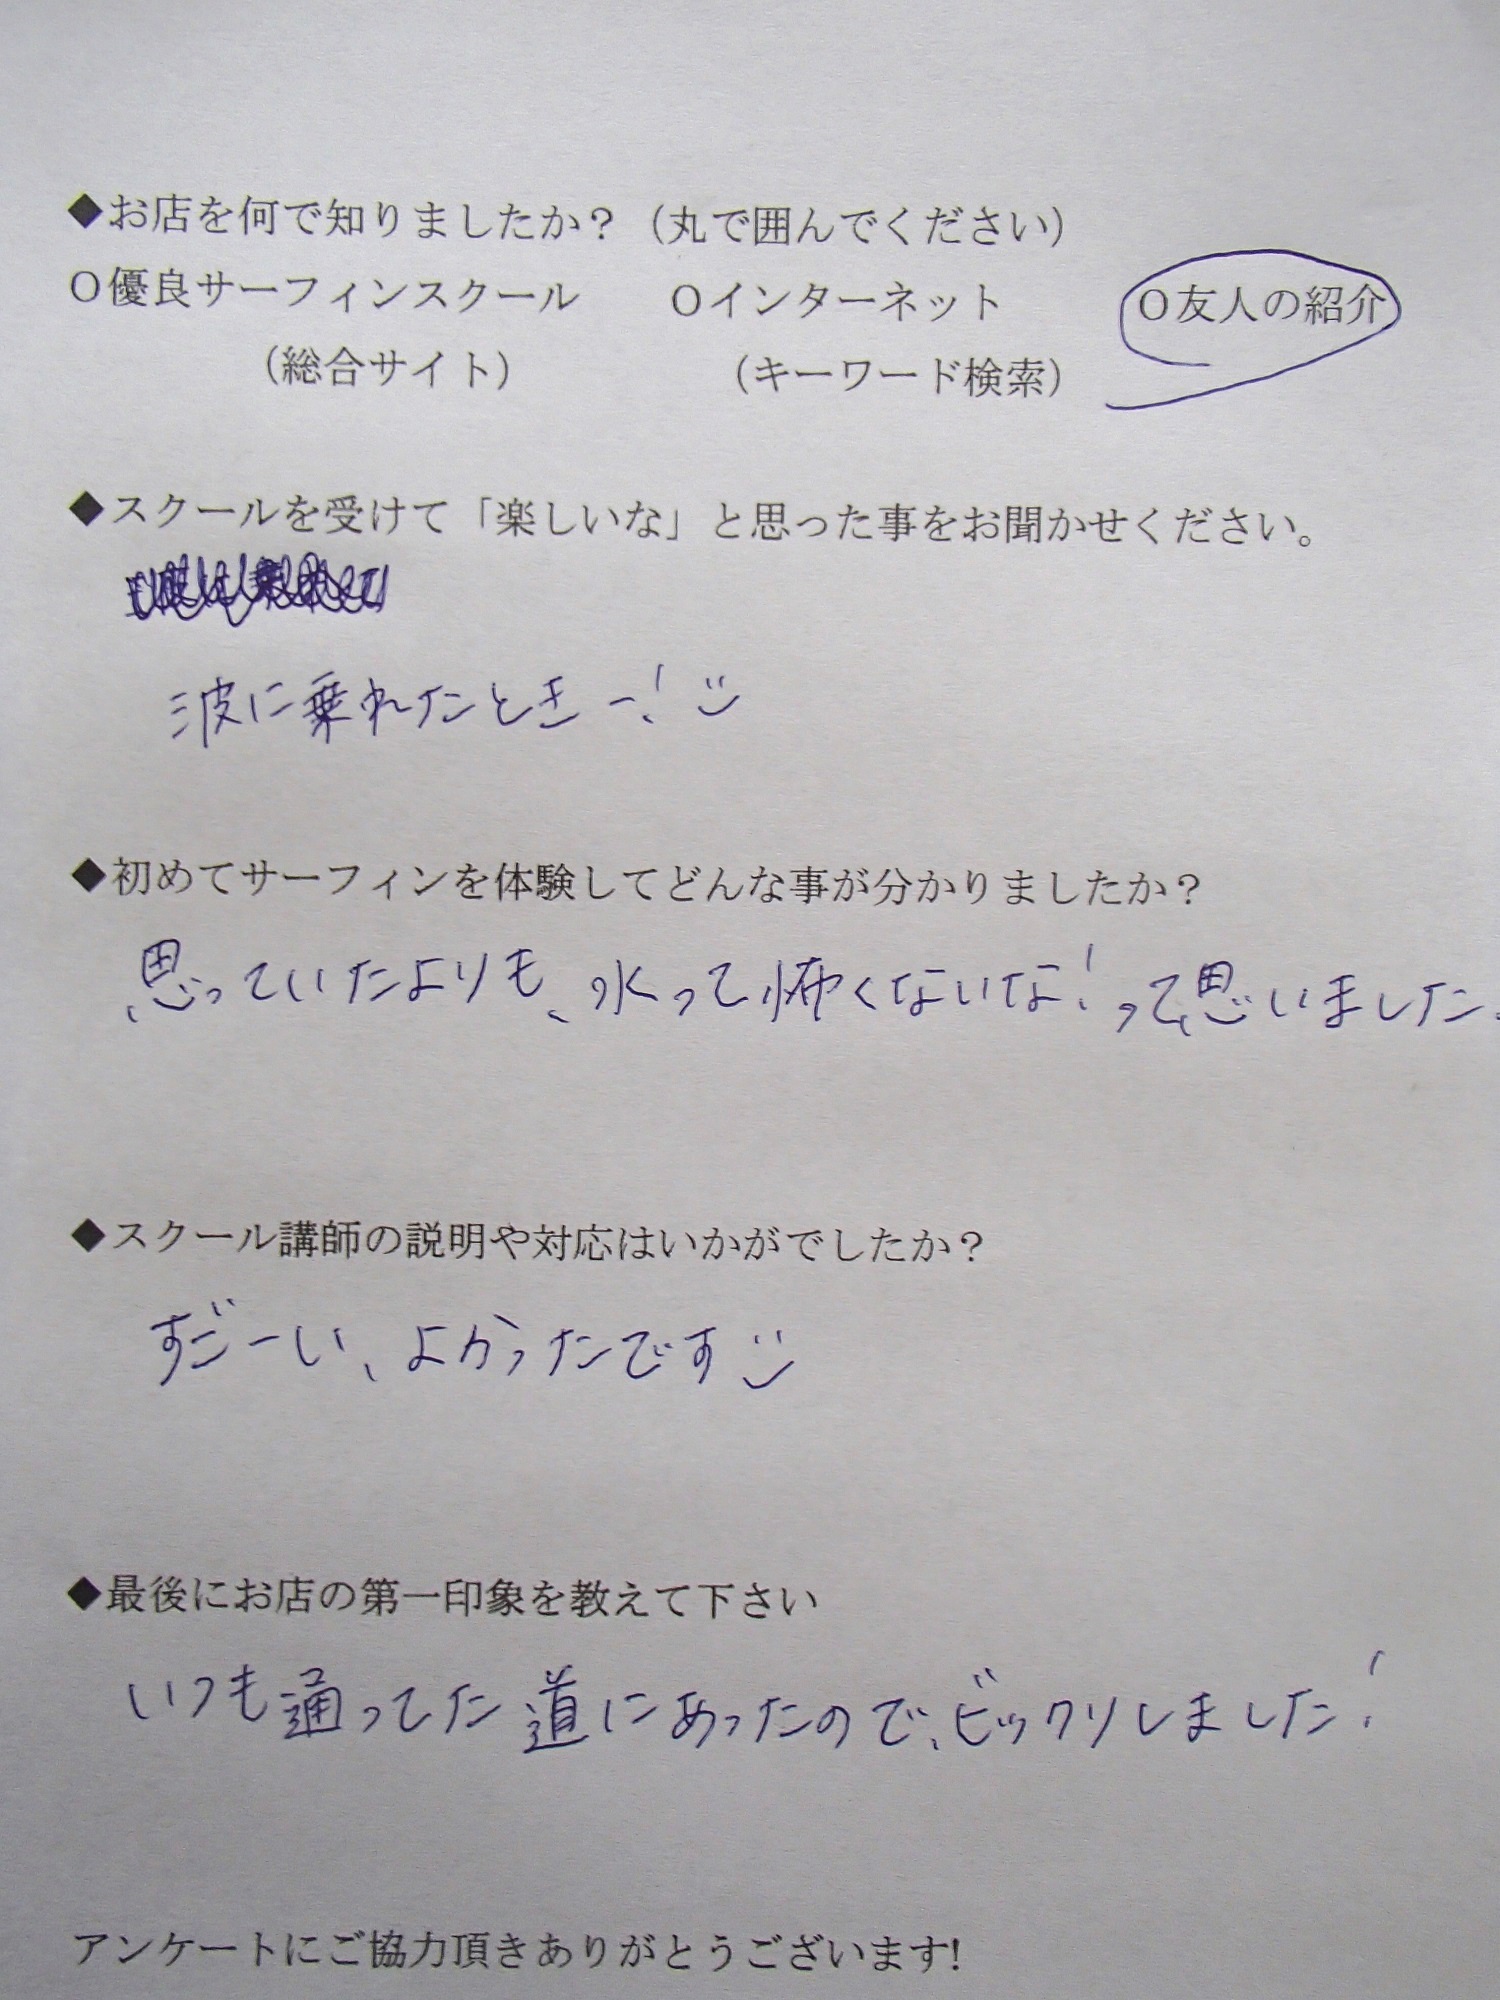 ◆お店を何で知りましたか？（丸で囲んでください）
○優良サーフィンスクール　○インターネット　○友人の紹介
（総合サイト）　（キーワード検索）
◆スクールを受けて「楽しいな」と思った事をお聞かせください。
波に乗れたときー!
◆初めてサーフィンを体験してどんな事が分かりましたか？
思っていたよりも、水って怖くないな!って思いました。
◆スクール講師の説明や対応はいかがでしたか？
すごーい、よかったです
◆最後にお店の第一印象を教えて下さい
いつも通ってた道にあったので、ビックリしました!
アンケートにご協力頂きありがとうございます!